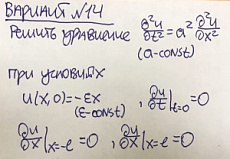 ВАРИАНТ №14
РЕШИТЬ УРАВНЕНИЕ ∂²u/∂t² = a² ∂²u/∂x²
(a-const)
ПРИ УСЛОВИЯХ
u(x,0)=-εx , ∂u/∂t|t=0 =0
(ε-const)
∂u/∂x|x=-e =0 , ∂u/∂x|x=e =0